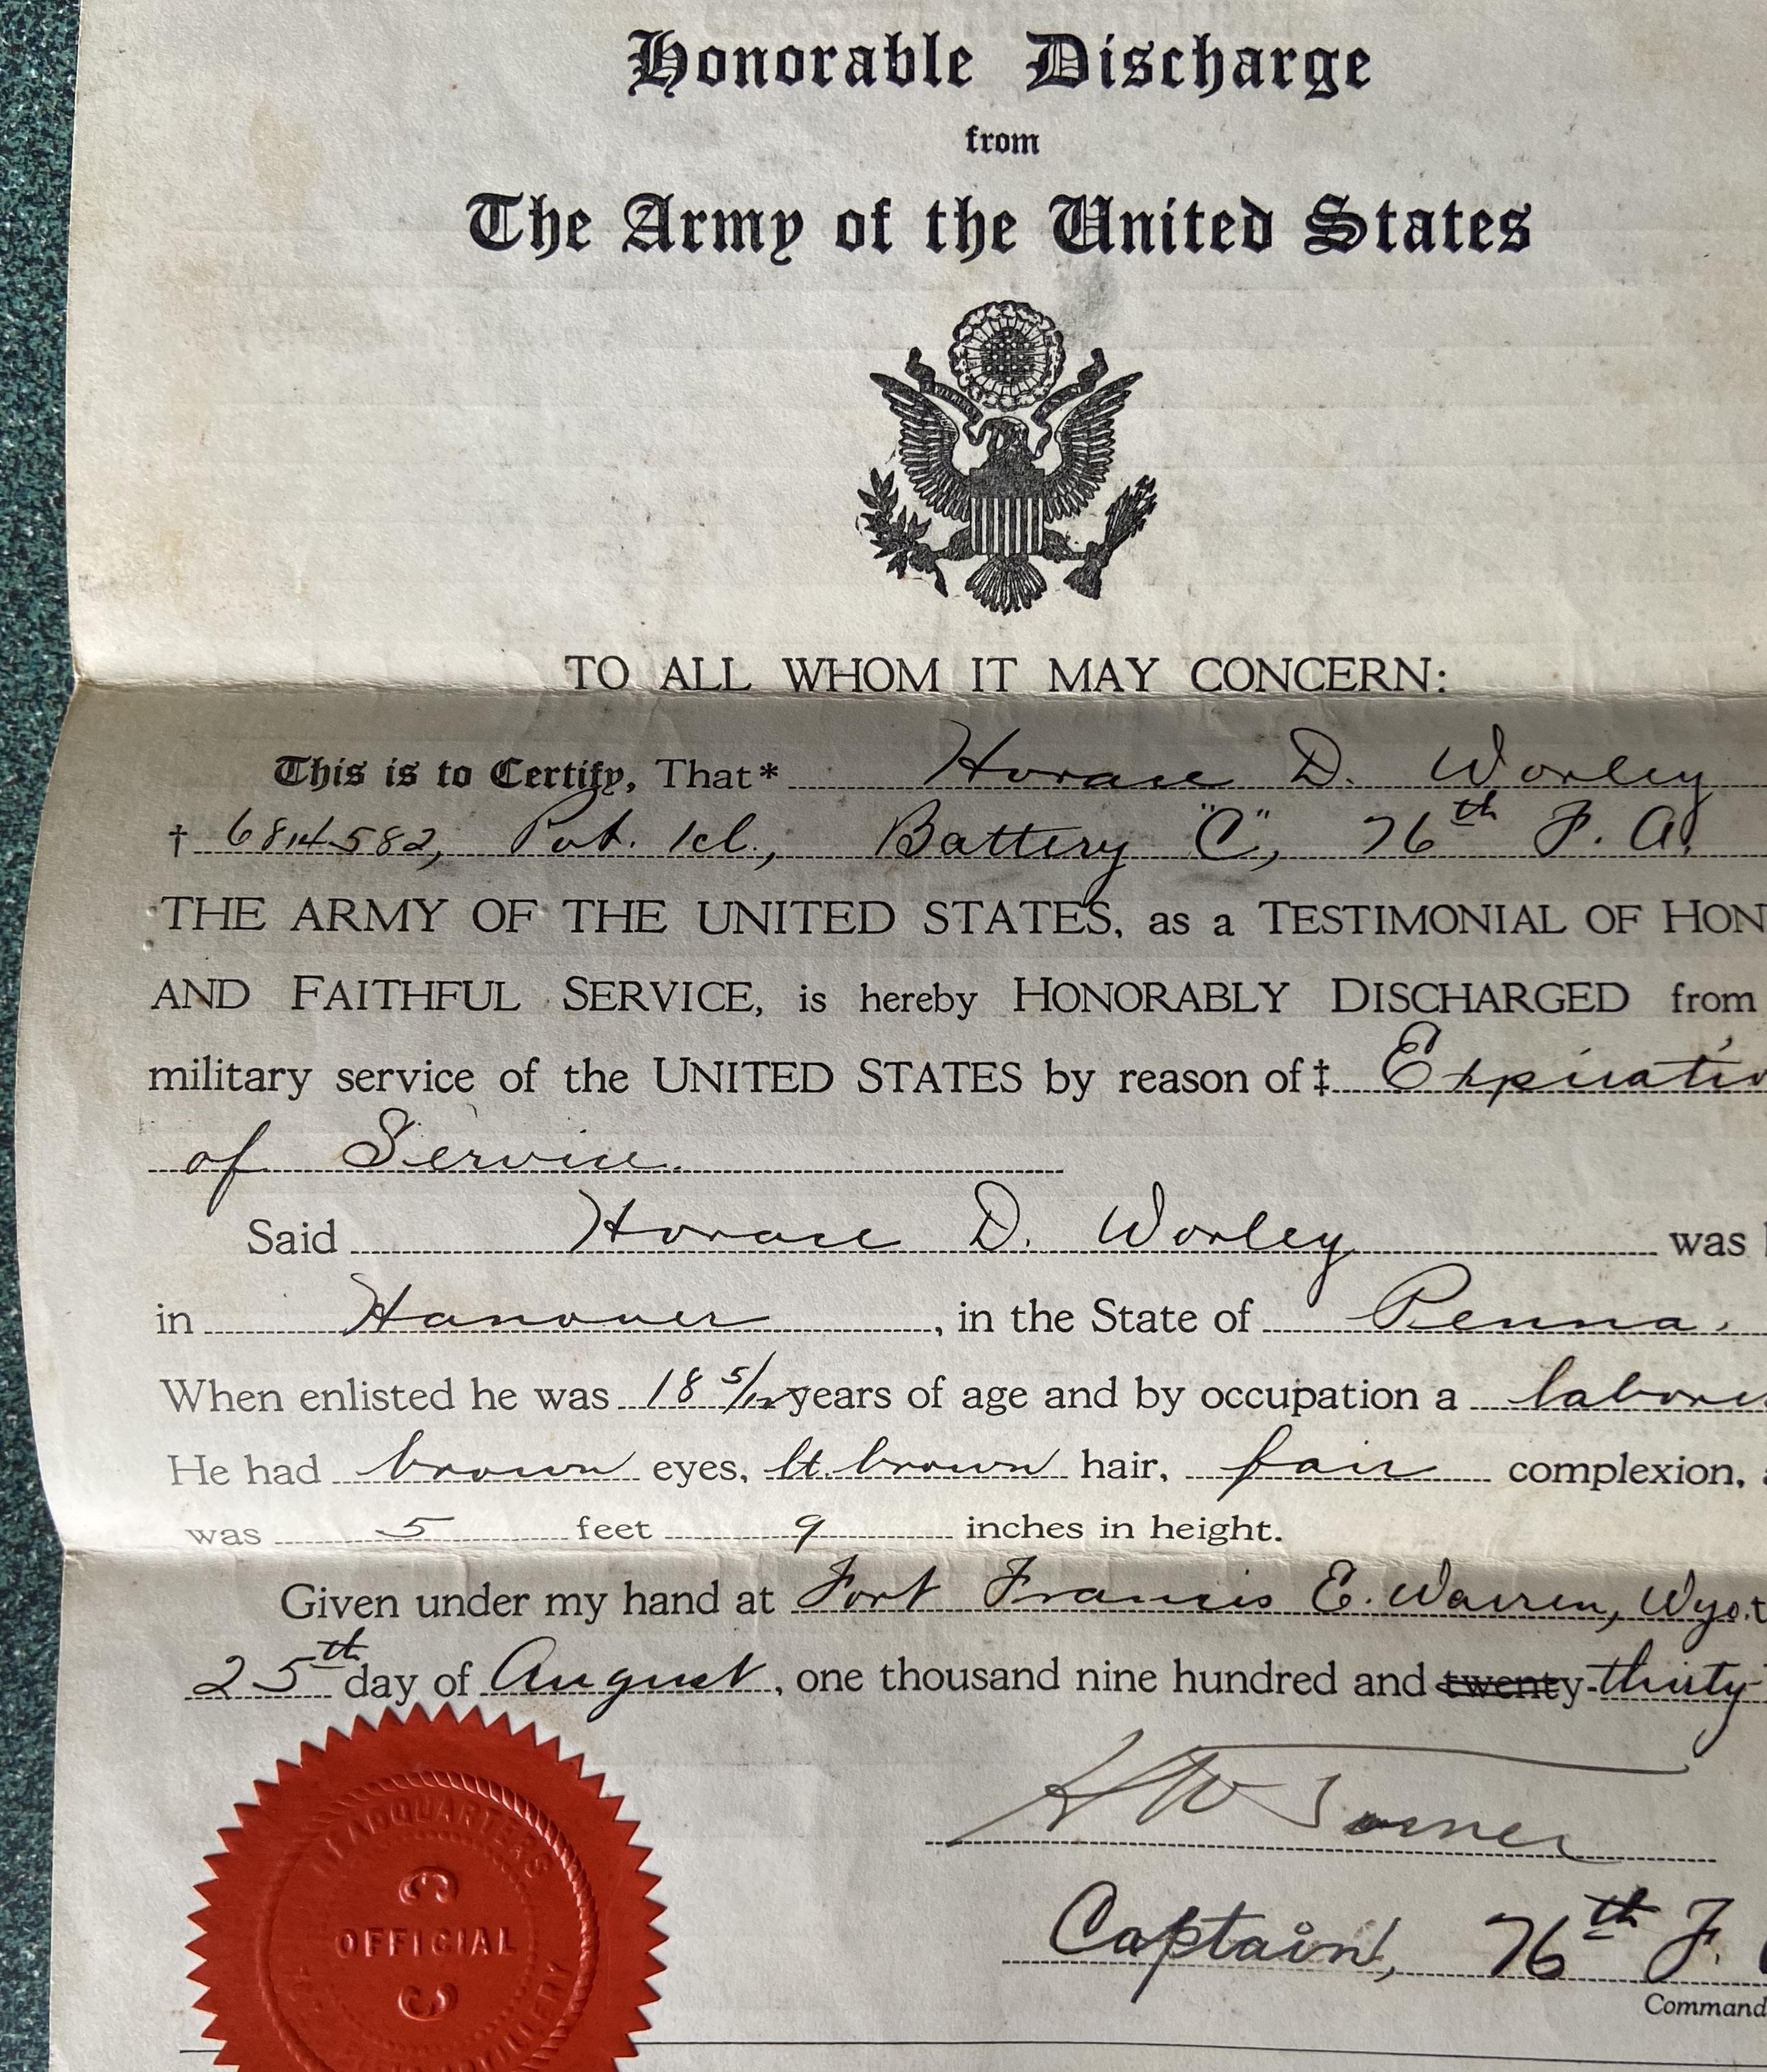 Honorable Discharge
from
The Army of the United States
TO ALL WHOM IT MAY CONCERN:
This is to Certify, That* Horace D. Worley
† 6814582, Pvt. 1cl., Battery "C", 76th F. A.
THE ARMY OF THE UNITED STATES, as a TESTIMONIAL OF HON
AND FAITHFUL SERVICE, is hereby HONORABLY DISCHARGED from
military service of the UNITED STATES by reason of ‡ Expiratio
of Service.
Said Horace D. Worley was
in Hanover, in the State of Penna.
When enlisted he was 18 5/12 years of age and by occupation a labore
He had brown eyes, lt. brown hair, fair complexion, a
was 5 feet 9 inches in height.
Given under my hand at Fort Francis E. Warren, Wyo. t
25th day of August, one thousand nine hundred and twenty-thirty-
H W
Captain, 76th F.
Command
HEADQUARTERS
OFFICIAL
ARTILLERY